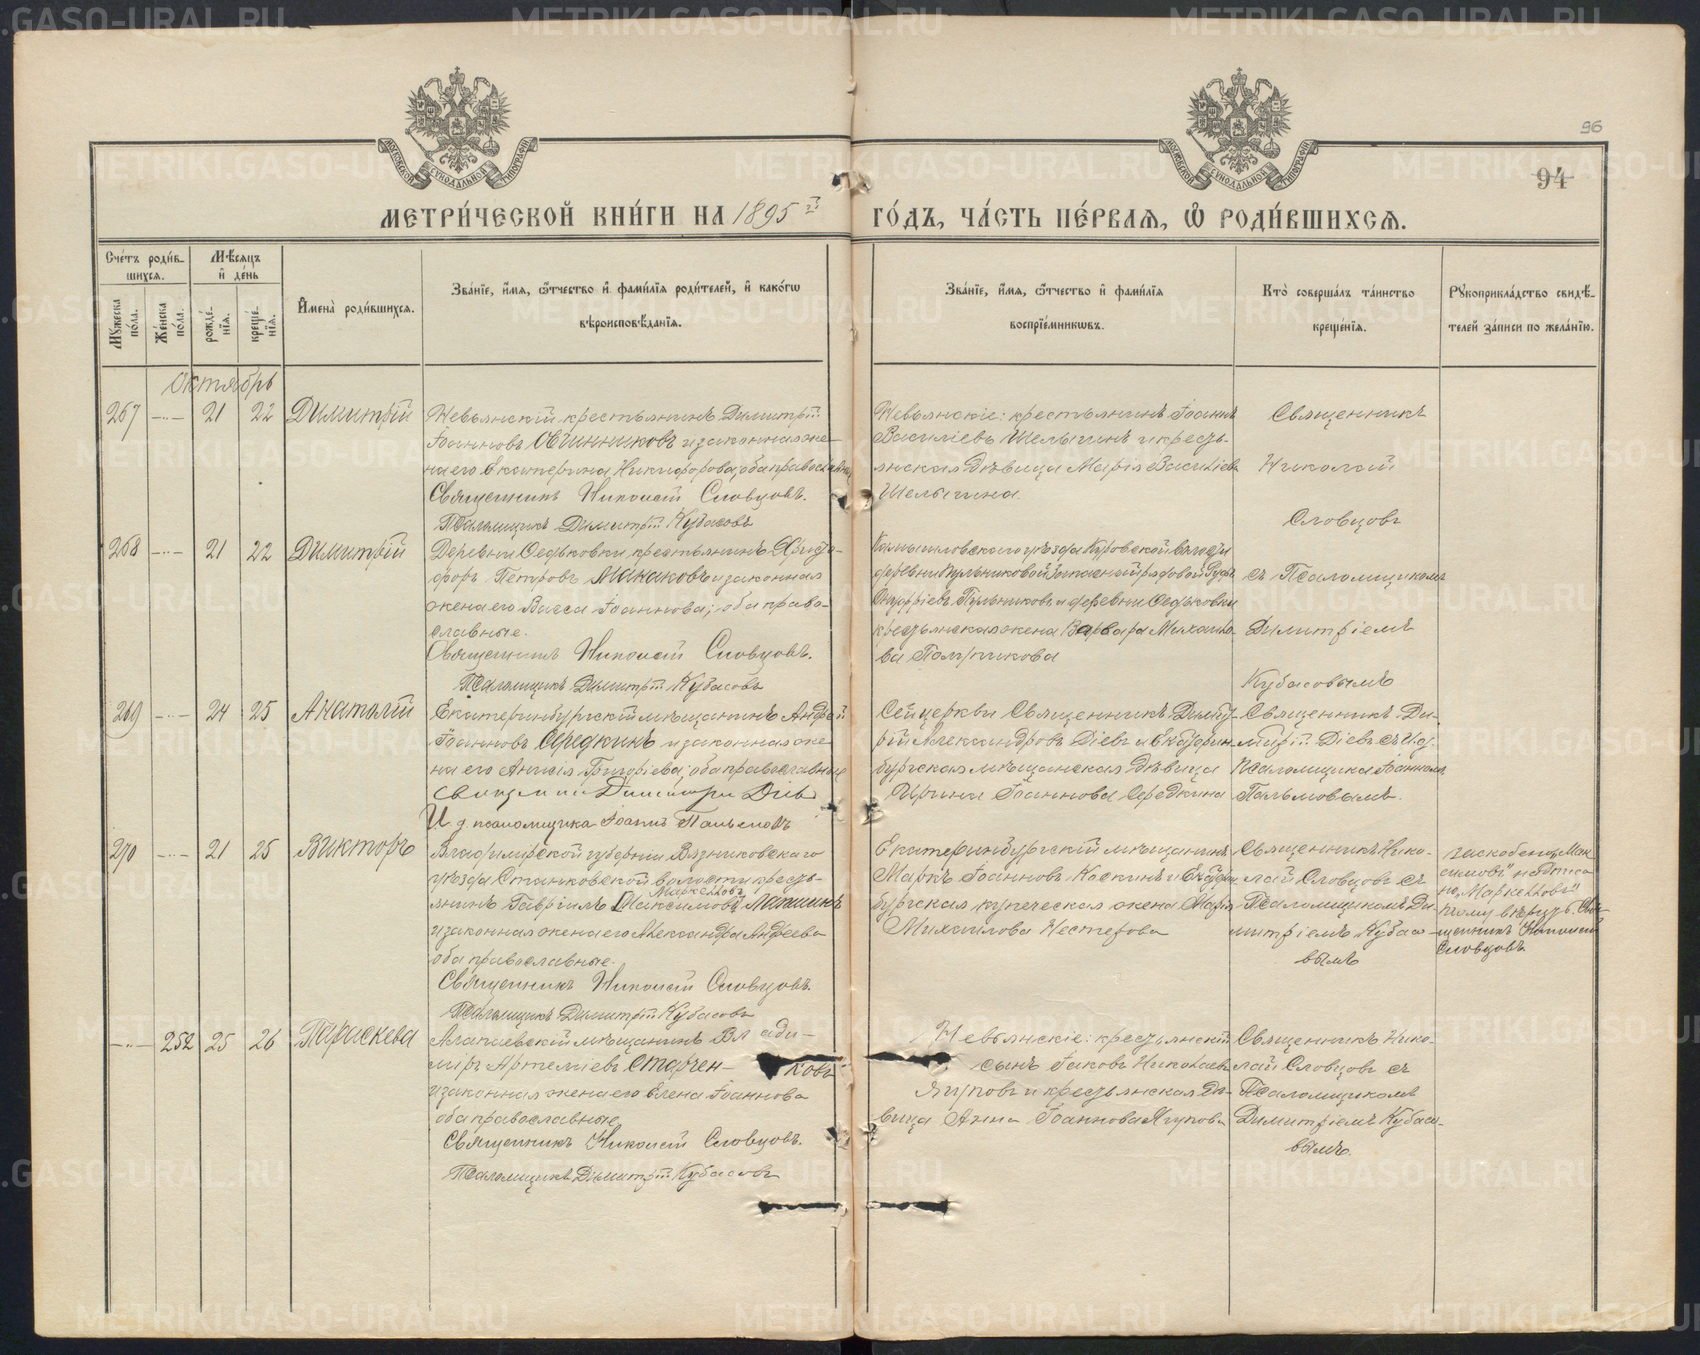 96
94
МЕТРИ́ЧЕСКОЙ КНИ́ГИ НА 1895й ГО́ДЪ, ЧА́СТЬ ПЕ́РВАЯ, Ѡ РОДИ́ВШИХСЯ.
Сче́тъ роди́в-
шихся.
Му́жеска по́ла.
Же́нска по́ла.
Мѣ́сяцъ
и де́нь
рожде́-
нія.
креще́-
нія.
Имена̀ роди́вшихся.
Зва́ніе, и́мя, ѻ́тчество и фами́лія роди́телей, и како́гѡ
вѣроисповѣ́данія.
Зва́ніе, и́мя, ѻ́тчество и фами́лія
воспріе́мниковъ.
Кто̀ соверша́лъ та́инство
креще́нія.
Рукоприкла́дство свидѣ́-
телей за́писи по жела́нію.
Октябрь
267 —„— 21 22 Димитрій
Невьянскій крестьянинъ Димитрій
Іоанновъ Овчинниковъ и законная же-
на его Екатерина Никифорова, оба православны
Священникъ Николай Словцовъ.
Псаломщикъ Димитрій Кубасовъ
Невьянскіе: крестьянинъ Іоаннъ
Василіевъ Шелыгинъ и кресть-
янская дѣвица Марія Василіев
Шелыгина.
Священникъ
Николай
Словцовъ
268 —„— 21 22 Димитрій
Деревни Федьковки крестьянинъ Христо-
форъ Петровъ Манаковъ и законная
жена его Васса Іоаннова; оба право-
славные.
Священникъ Николай Словцовъ.
Псаломщикъ Димитрій Кубасовъ
Камышловскаго уѣзда Куровской волости
деревни Пульниковой запасной рядовой
Онуфріевъ Пульниковъ и деревни Федьковки
крестьянская жена Варвара Михаило-
ва
съ Псаломщикомъ
Димитріемъ
Кубасовымъ
269 —„— 24 25 Анатолій
Екатеринбургскій мѣщанинъ Андрей
Іоанновъ Середкинъ и законная же-
на его Анисія Григоріева; оба православные
Священникъ Димитрій Діевъ
И. д. псаломщика Іоаннъ Пальмовъ
Сей церкви Священникъ Димит-
рій Александровъ Діевъ и Екатерин-
бургская мѣщанская дѣвица
Ирина Іоаннова Середкина
Священникъ Ди-
митрій Діевъ съ И. д.
Псаломщика Іоанномъ
Пальмовымъ.
270 —„— 21 25 Викторъ
Владимірской губерніи Вязниковскаго
уѣзда Станковской волости кресть-
Маркелловъ
янинъ Гавріилъ Максимовъ
и законная жена его Александра Андреева
оба православные.
Священникъ Николай Словцовъ.
Псаломщикъ Димитрій Кубасовъ
Екатеринбургскій мѣщанинъ
Маркъ Іоанновъ и Екатерин
бургская купеческая жена Марія
Михаилова Нестерова
Священникъ Нико-
лай Словцовъ съ
Псаломщикомъ Ди-
митріемъ Кубасо-
вымъ
„Мак
симовъ" и написа
но „Маркелловъ"
тому вѣрить. Свя-
щенникъ Николай
Словцовъ.
—„— 252 25 26 Параскева
Алапаевскій мѣщанинъ Влади-
міръ Артеміевъ Старченковъ
и законная жена его Елена Іоаннова
оба православные
Священникъ Николай Словцовъ.
Псаломщикъ Димитрій Кубасовъ
Невьянскіе: крестьянскій
сынъ Іаковъ Николаев
Ягуповъ и крестьянская дѣ-
вица Анна Іоаннова Ягупова
Священникъ Нико-
лай Словцовъ съ
Псаломщикомъ
Димитріемъ Кубасо-
вымъ.
METRIKI.GASO-URAL.RU